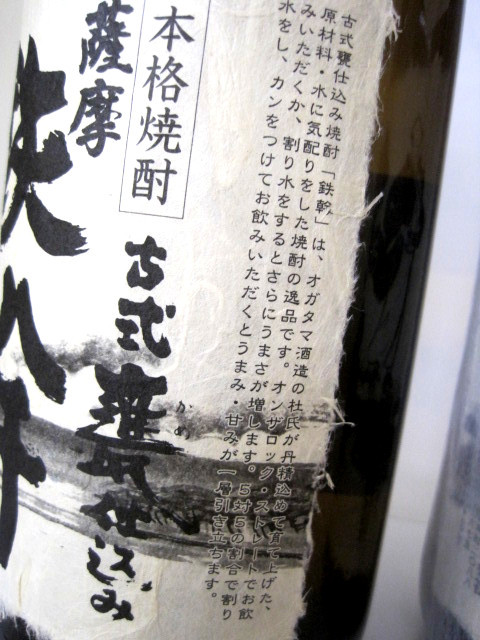 古式甕仕込み焼酎「鉄幹」は、オガタマ酒造の杜氏が丹精込めて育て上げた、
原材料・水に気配りをした焼酎の逸品です。オンザロック・ストレートでお飲
みいただくか、割り水をするとさらにうまさが増します。5対5の割合で割り
水をし、カンをつけてお飲みいただくとうまみ・甘みが一層引き立ちます。
本格焼酎
古式甕仕込み
かめ
薩摩